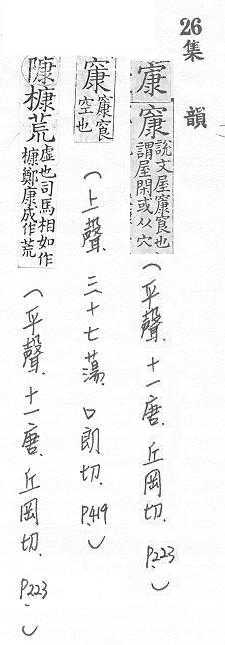 26 集韻
㝩 說文屋㝩㝗也
謂屋閑或从穴
(平聲. 十一唐. 丘岡切. P.223)
㝗
空也
(上聲. 三十七蕩. 口朗切. P.419)
槺荒 虛也司馬相如作
槺鄭康成作荒
(平聲. 十一唐. 丘岡切. P.223)